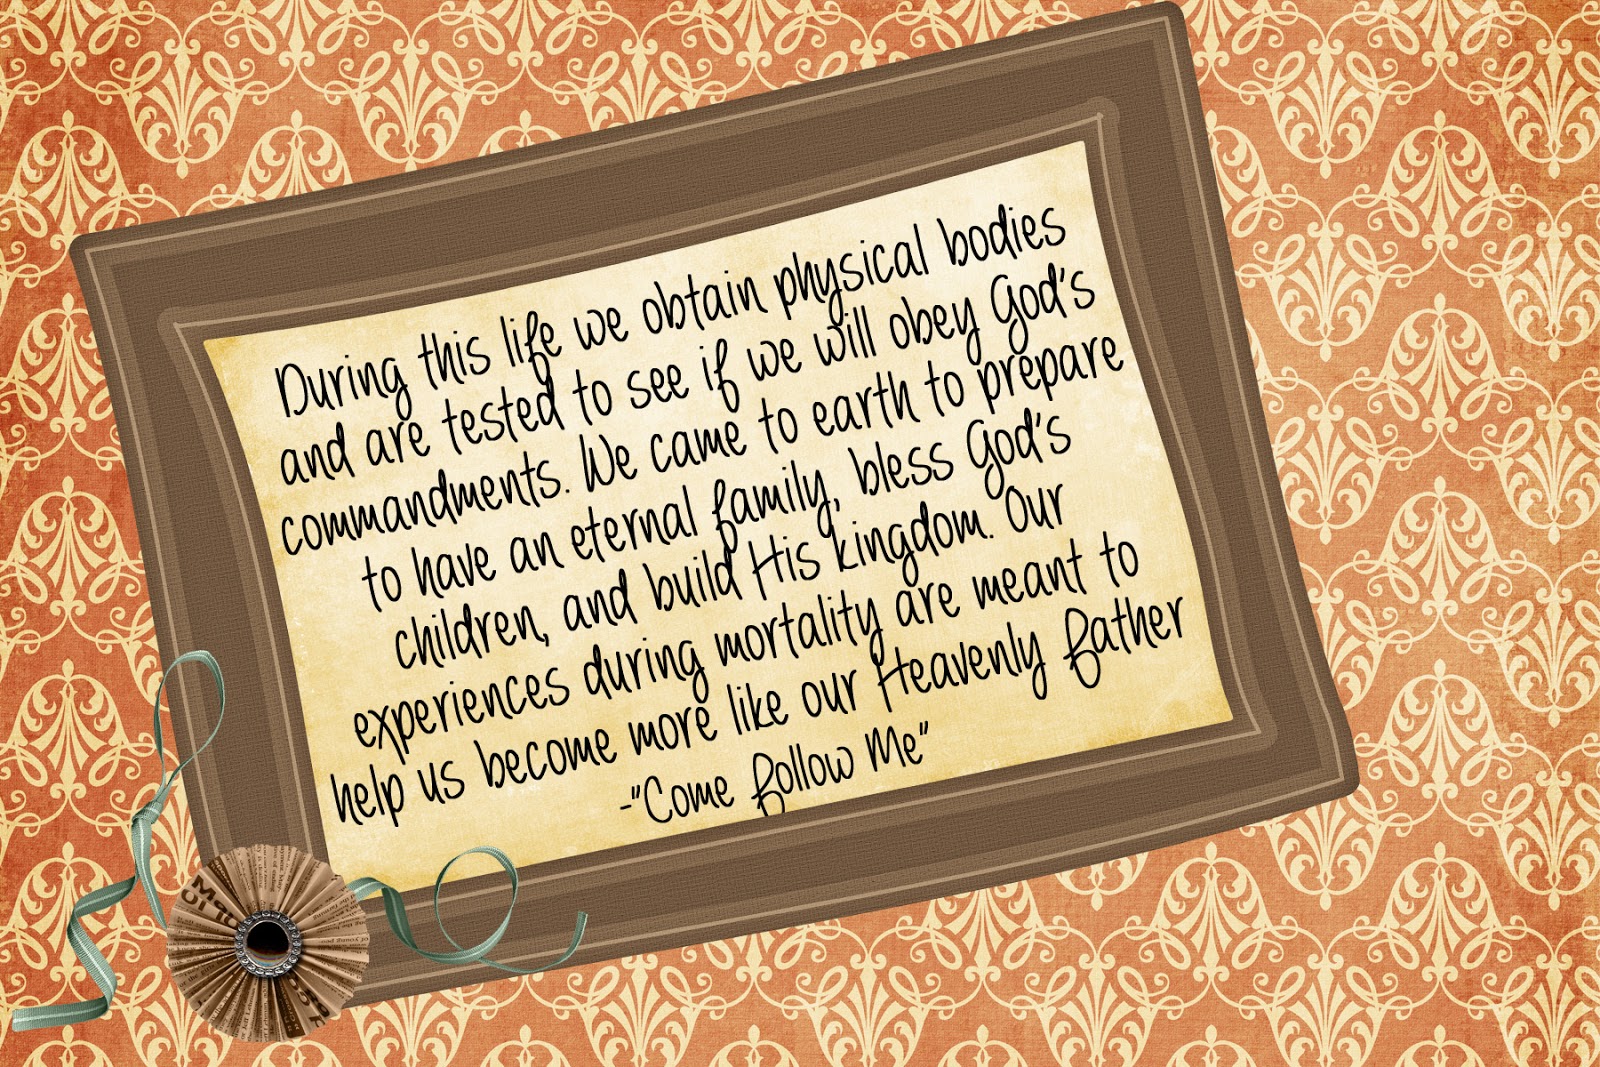 During this life we obtain physical bodies
and are tested to see if we will obey God's
commandments. We came to earth to prepare
to have an eternal family, bless God's
children, and build His kingdom. Our
experiences during mortality are meant to
help us become more like our Heavenly Father
-"Come Follow Me"